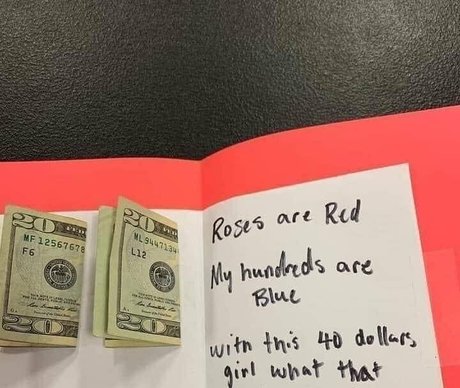 20
MF12567678
F6
20
20
ML9447134
L12
20
Roses are Red
My hundreds are
Blue
with this 40 dollars,
girl what that